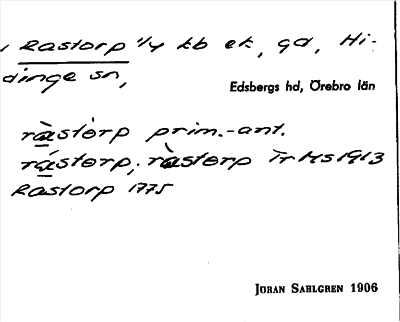 Rastorp 1/4 kb ek, gd, Hi-
dinge sn,
Edsbergs hd, Örebro län
ràstòrp prim.-ant.
rástorp; ràstorp Tr Hs 1913
Rastorp 1775
JÖRAN SAHLGREN 1906